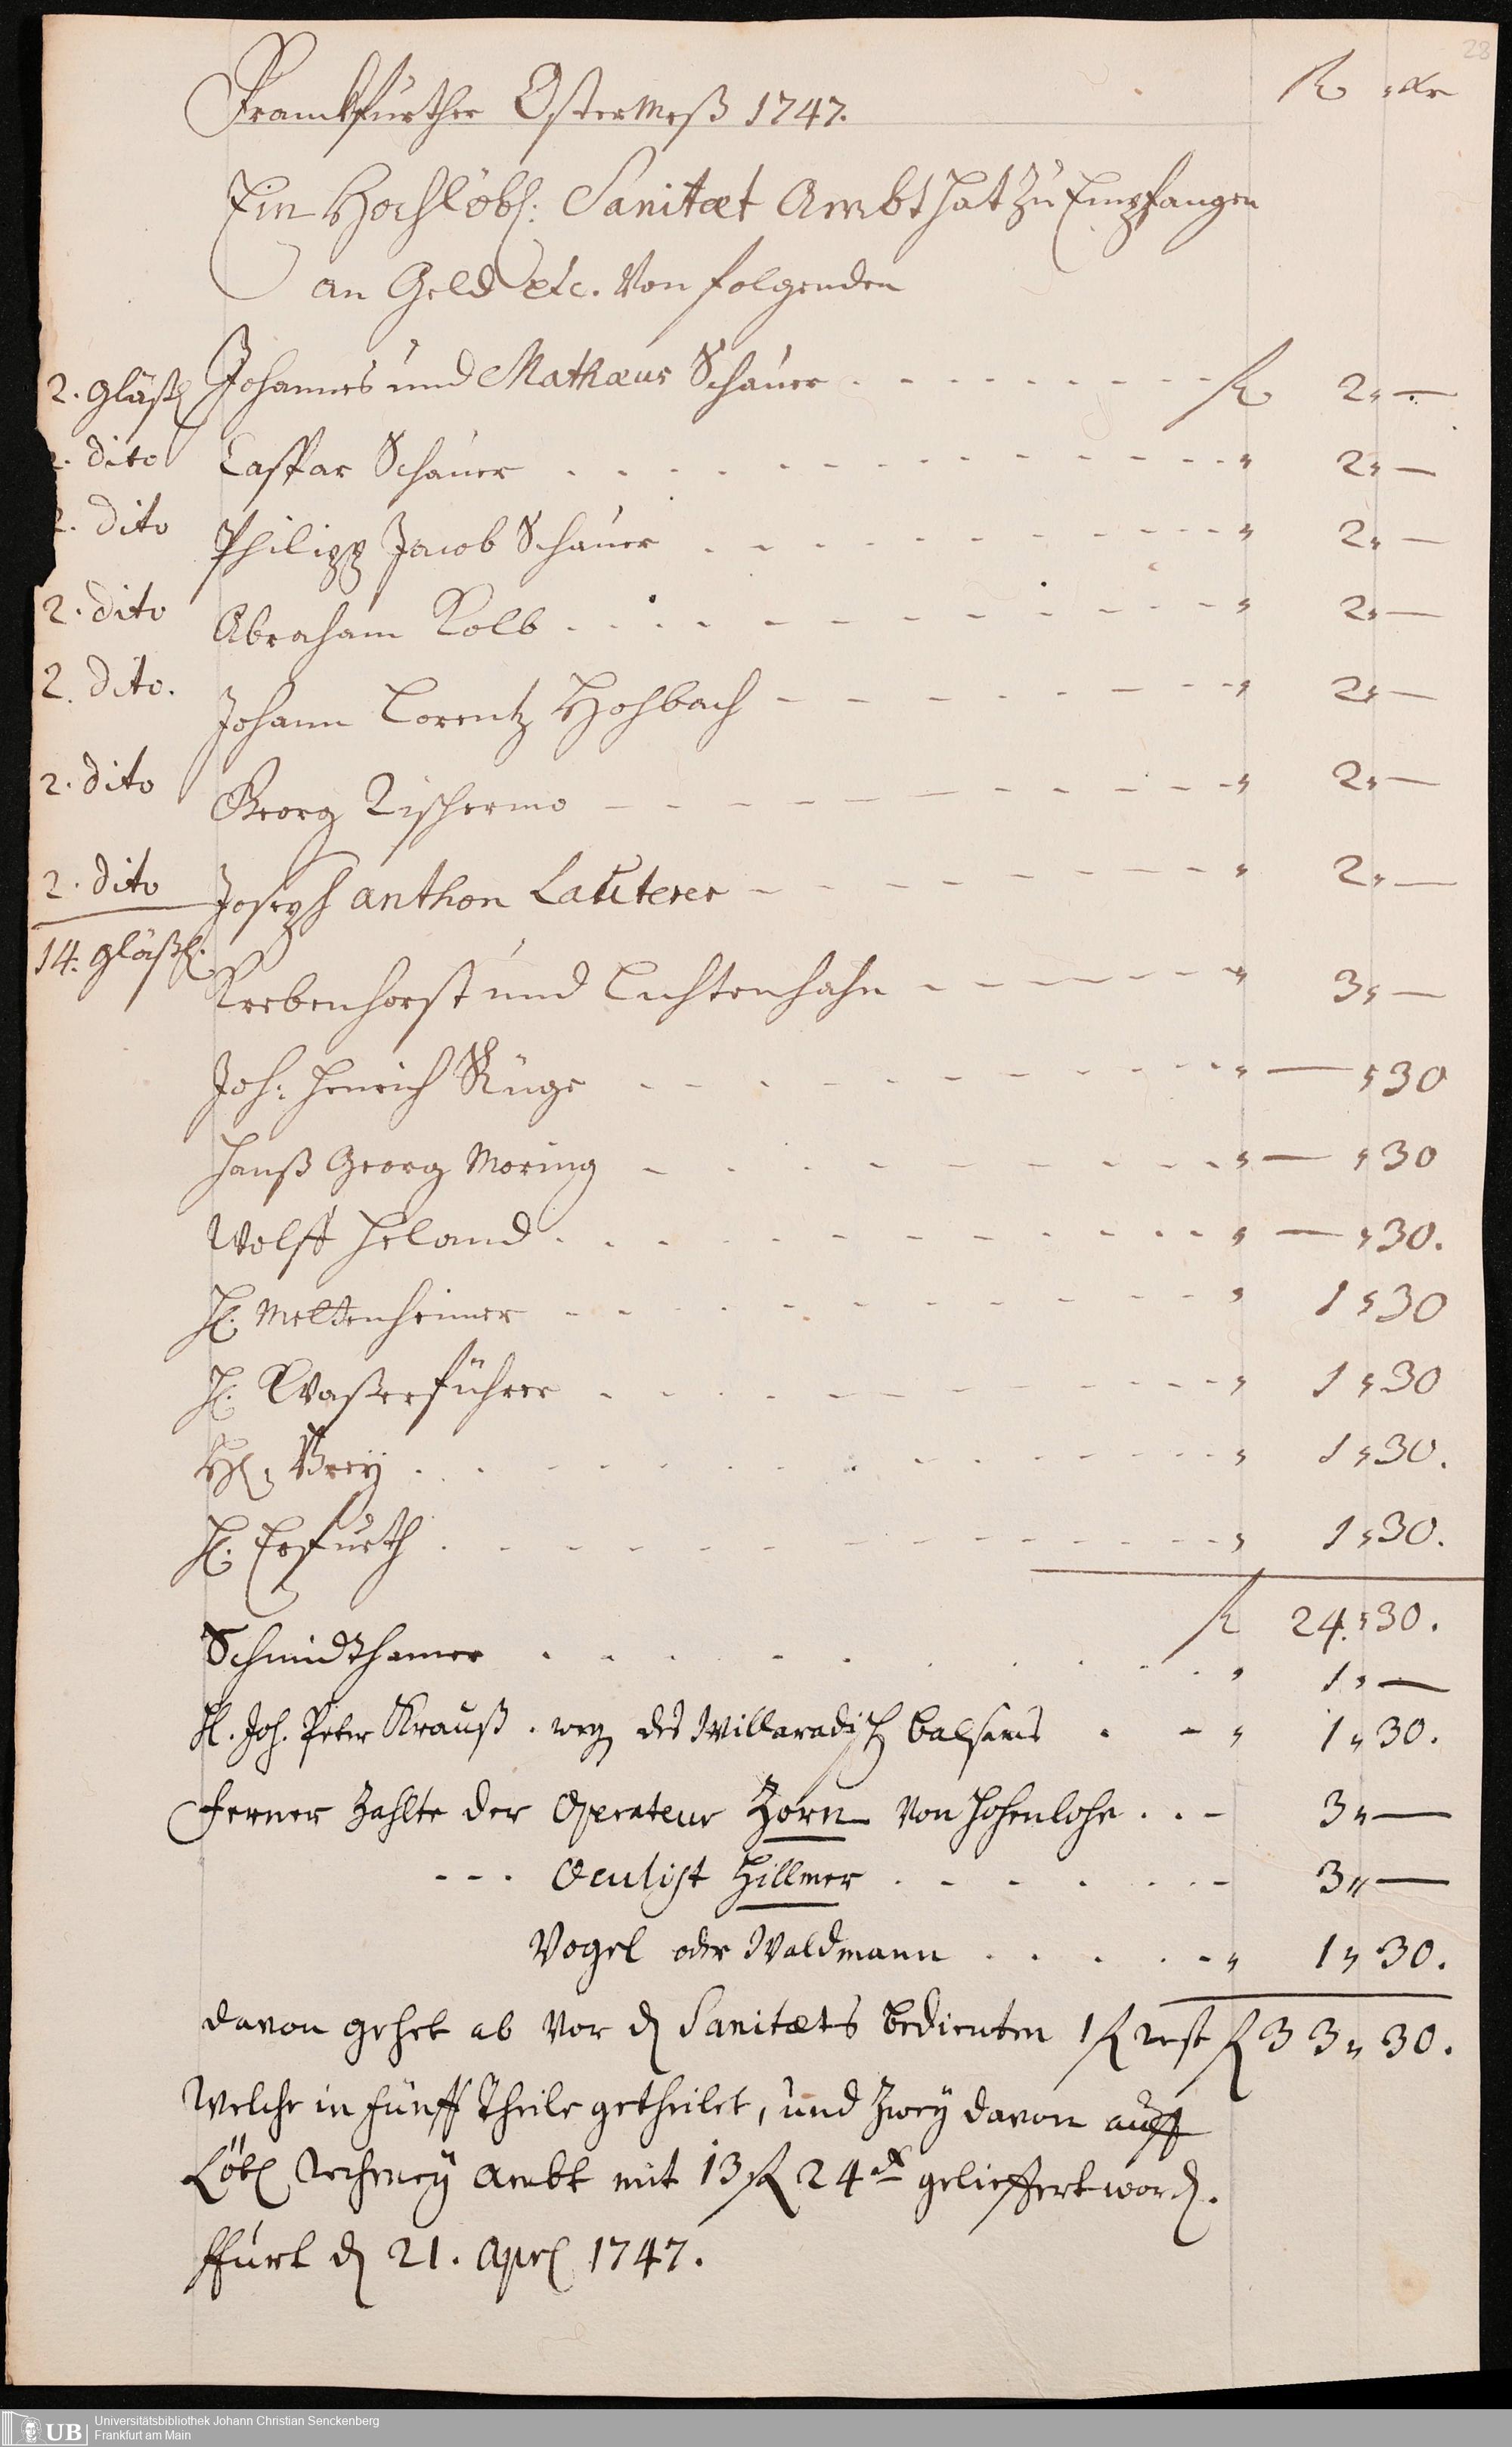 28
Franckfurther Ostermeß 1747. fl xr
Ein Hochlöbl: Sanitæt Ambt hat zu Empfangen
an Geld etc. Von folgenden
2. gläßl Johannes und Mathæus Schauer . . . . fl 2 " —
2. dito Caspar Schauer . . . . " 2 " —
2. dito Philipp Jacob Schauer . . . . " 2 " —
2. dito Abraham Kolb . . . . " 2 " —
2. dito. Johann Lorentz Hohbach . . . . " 2 " —
2. dito Georg . . . . " 2 " —
2. dito Joseph anthon Lauterer . . . . " 2 " —
14. gläßl.
Krebenhorst und Lichtenhahn . . . . " 3 " —
Joh: Henrich Ruge . . . . " — " 30
Hanß Georg Moring . . . . " — " 30
Wolff Heland . . . . " — " 30.
H. Meltenheimer . . . . " 1 " 30
H. Waßerführer . . . . " 1 " 30
H: Brey . . . . " 1 " 30.
H. Erfurth . . . . " 1 " 30.
fl 24. " 30.
Schmidthamer . . . . " 1 " —
H. Joh. Peter Krauß. weg des Willaradisch balsams . . " 1 " 30.
ferner zahlte der Operateur Zorn von Hohenlohe . . . 3 " —
- - . Oculist Hillmer . . . . 3 " —
Vogel oder Waldmann . . . . " 1 " 30.
davon gehet ab vor d Sanitæts bedienten 1 fl rest fl 33 " 30.
Welche in fünff Theile getheilet, und zwey davon auff
Löbl Rechney Ambt mit 13 fl 24 xr gelieffert word.
ffurt d 21. Aprl 1747.
UB Universitätsbibliothek Johann Christian Senckenberg
Frankfurt am Main